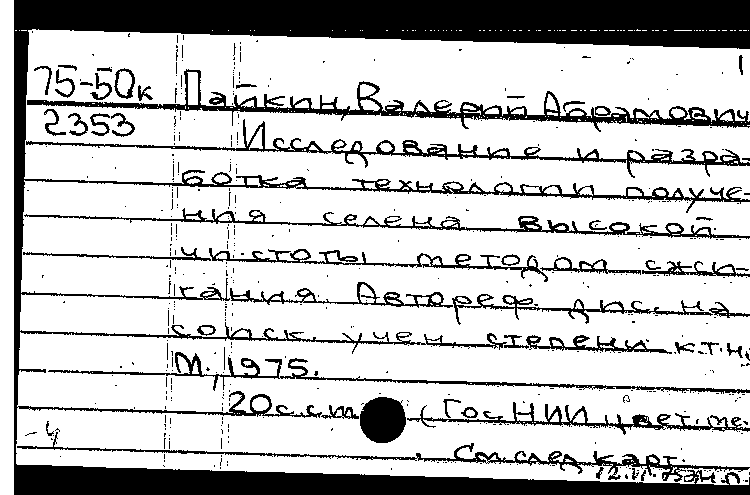 1
75-50к Пайкин, Валерий Абрамович
2353 Исследование и разра-
ботка технологии получе-
ния селена высокой
чистоты методом сжи-
гания. Автореф. дис. на
соиск. учен. степени к.т.н.
М., 1975.
20с. с ил (Гос. НИИ цвет. ме-
-4 См. след. карт.